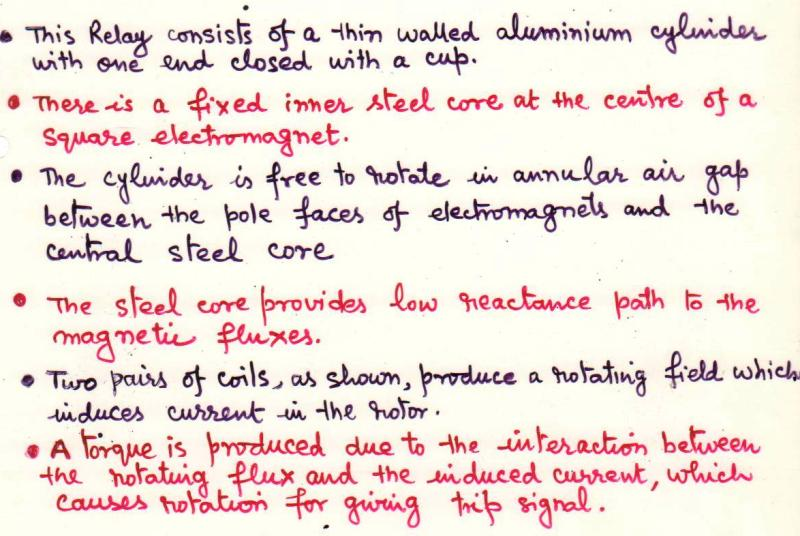 • This Relay consists of a thin walled aluminium cylinder
with one end closed with a cup.
• There is a fixed inner steel core at the centre of a
square electromagnet.
• The cylinder is free to rotate in annular air gap
between the pole faces of electromagnets and the
central steel core
• The steel core provides low reactance path to the
magnetic fluxes.
• Two pairs of coils, as shown, produce a rotating field which
induces current in the rotor.
• A torque is produced due to the interaction between
the rotating flux and the induced current, which
causes rotation for giving trip signal.